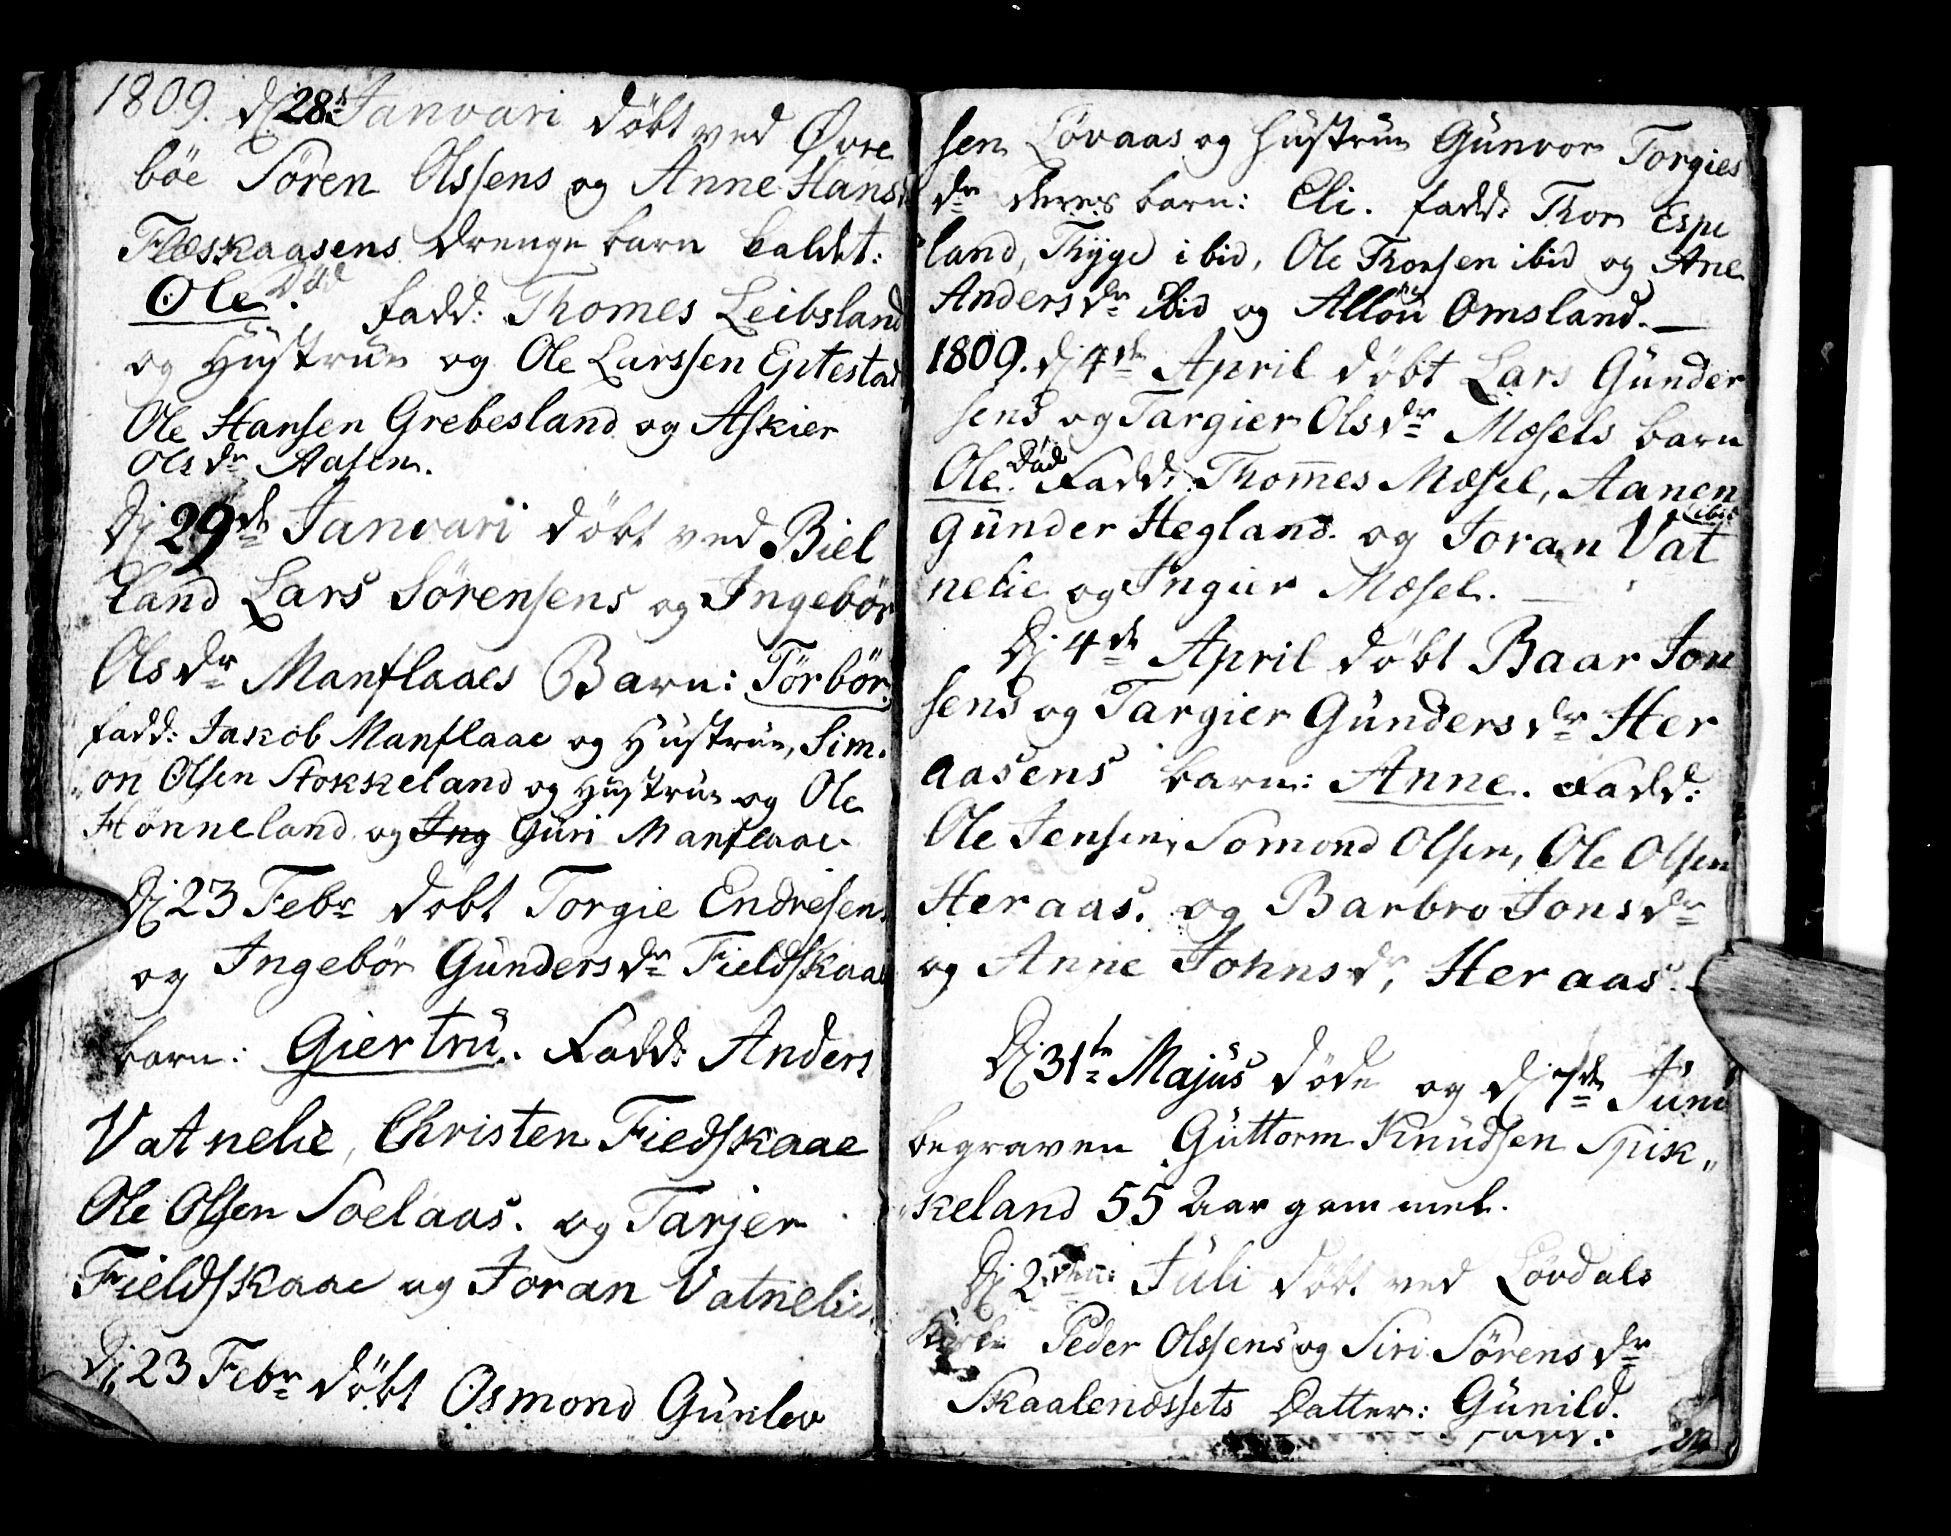 1809. dj 28de Januari döbt ved Øvre
böe Sören Olssens og Anne Hans
Flæskaasens drenge barn kaldet:
Ole. Död fadd: Thomes Leibsland
og Hüstrue og Ole Larssen Eptestad
Ole Hansen Grebesland og Askier
Olsdr Aasen.
Dj 29de Januari döbt ved Biel
land Lars Sörensens og Ingebör
Olsdr Manflaaes Barn: Törbör.
fadd: Jakob Manflaae og Hüstrue, Sim.
on Olsen Stokkeland og Hüstrue og Ole
Hönneland og Ing Güri Manflaae
Dj 23 Febr döbt Torgie Endresens
og Ingebör Gündersdr Fieldskaae
barn: Giertrü. Fadd: Anders
Vatnelie, Christen Fiedskaae
Ole Olsen Soelaas. og Tarjer
Fieldskaae og Joran Vatnelie
Dj 23 Febr döbt Osmond Günlev
sen Lövaas og Hüstrue Günvor Torgies
dr deres barn: Eli. fadd: Thor Espe
land, Thyge ibid, Ole Thorsen ibid og Ane
Andersdr ibid og Allou Omsland.
1809. dj 4de April döbt Lars Günder
sens og Targier Olsdr Mosels barn
Ole. Död Fadd: Thomes Mosel, Aanen
Günder Hegland. og Joran Vat
nelie og Ingier Mosel.
Dj 4de April döbt Baar Jon
sens og Targier Gündersdr Her
aasens barn: Anne. Fadd:
Ole Jensen, Somond Olsen, Ole Olsen
Heraas. og Barbro Jonsdr
og Anne Johnsdr, Heraas.
Dj 31te Majüs döde og dj 7de Juni
begraven Güttorm Knüdsen Spik„
keland 55 Aar gammel.
Dj 2den Jüli döbt ved Lövdals
Kirke Peder Olssens og Siri Sörensdr
Skaalendssets Datter: Günild.
fadd: